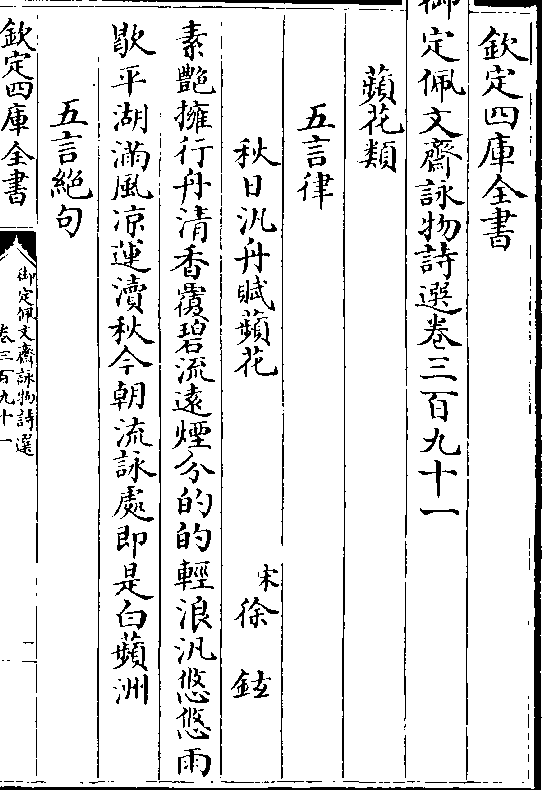 欽定四庫全書
御定佩文齋詠物詩選卷三百九十一
蘋花類
五言律
秋日汎舟賦蘋花
宋徐鉉
素艷擁行舟清香覆碧流遠煙分的的輕浪汎悠悠雨
歇平湖滿風凉運瀆秋今朝流詠處即是白蘋洲
五言絶句
欽定四庫全書
御定佩文齋詠物詩選
卷三百九十一
一